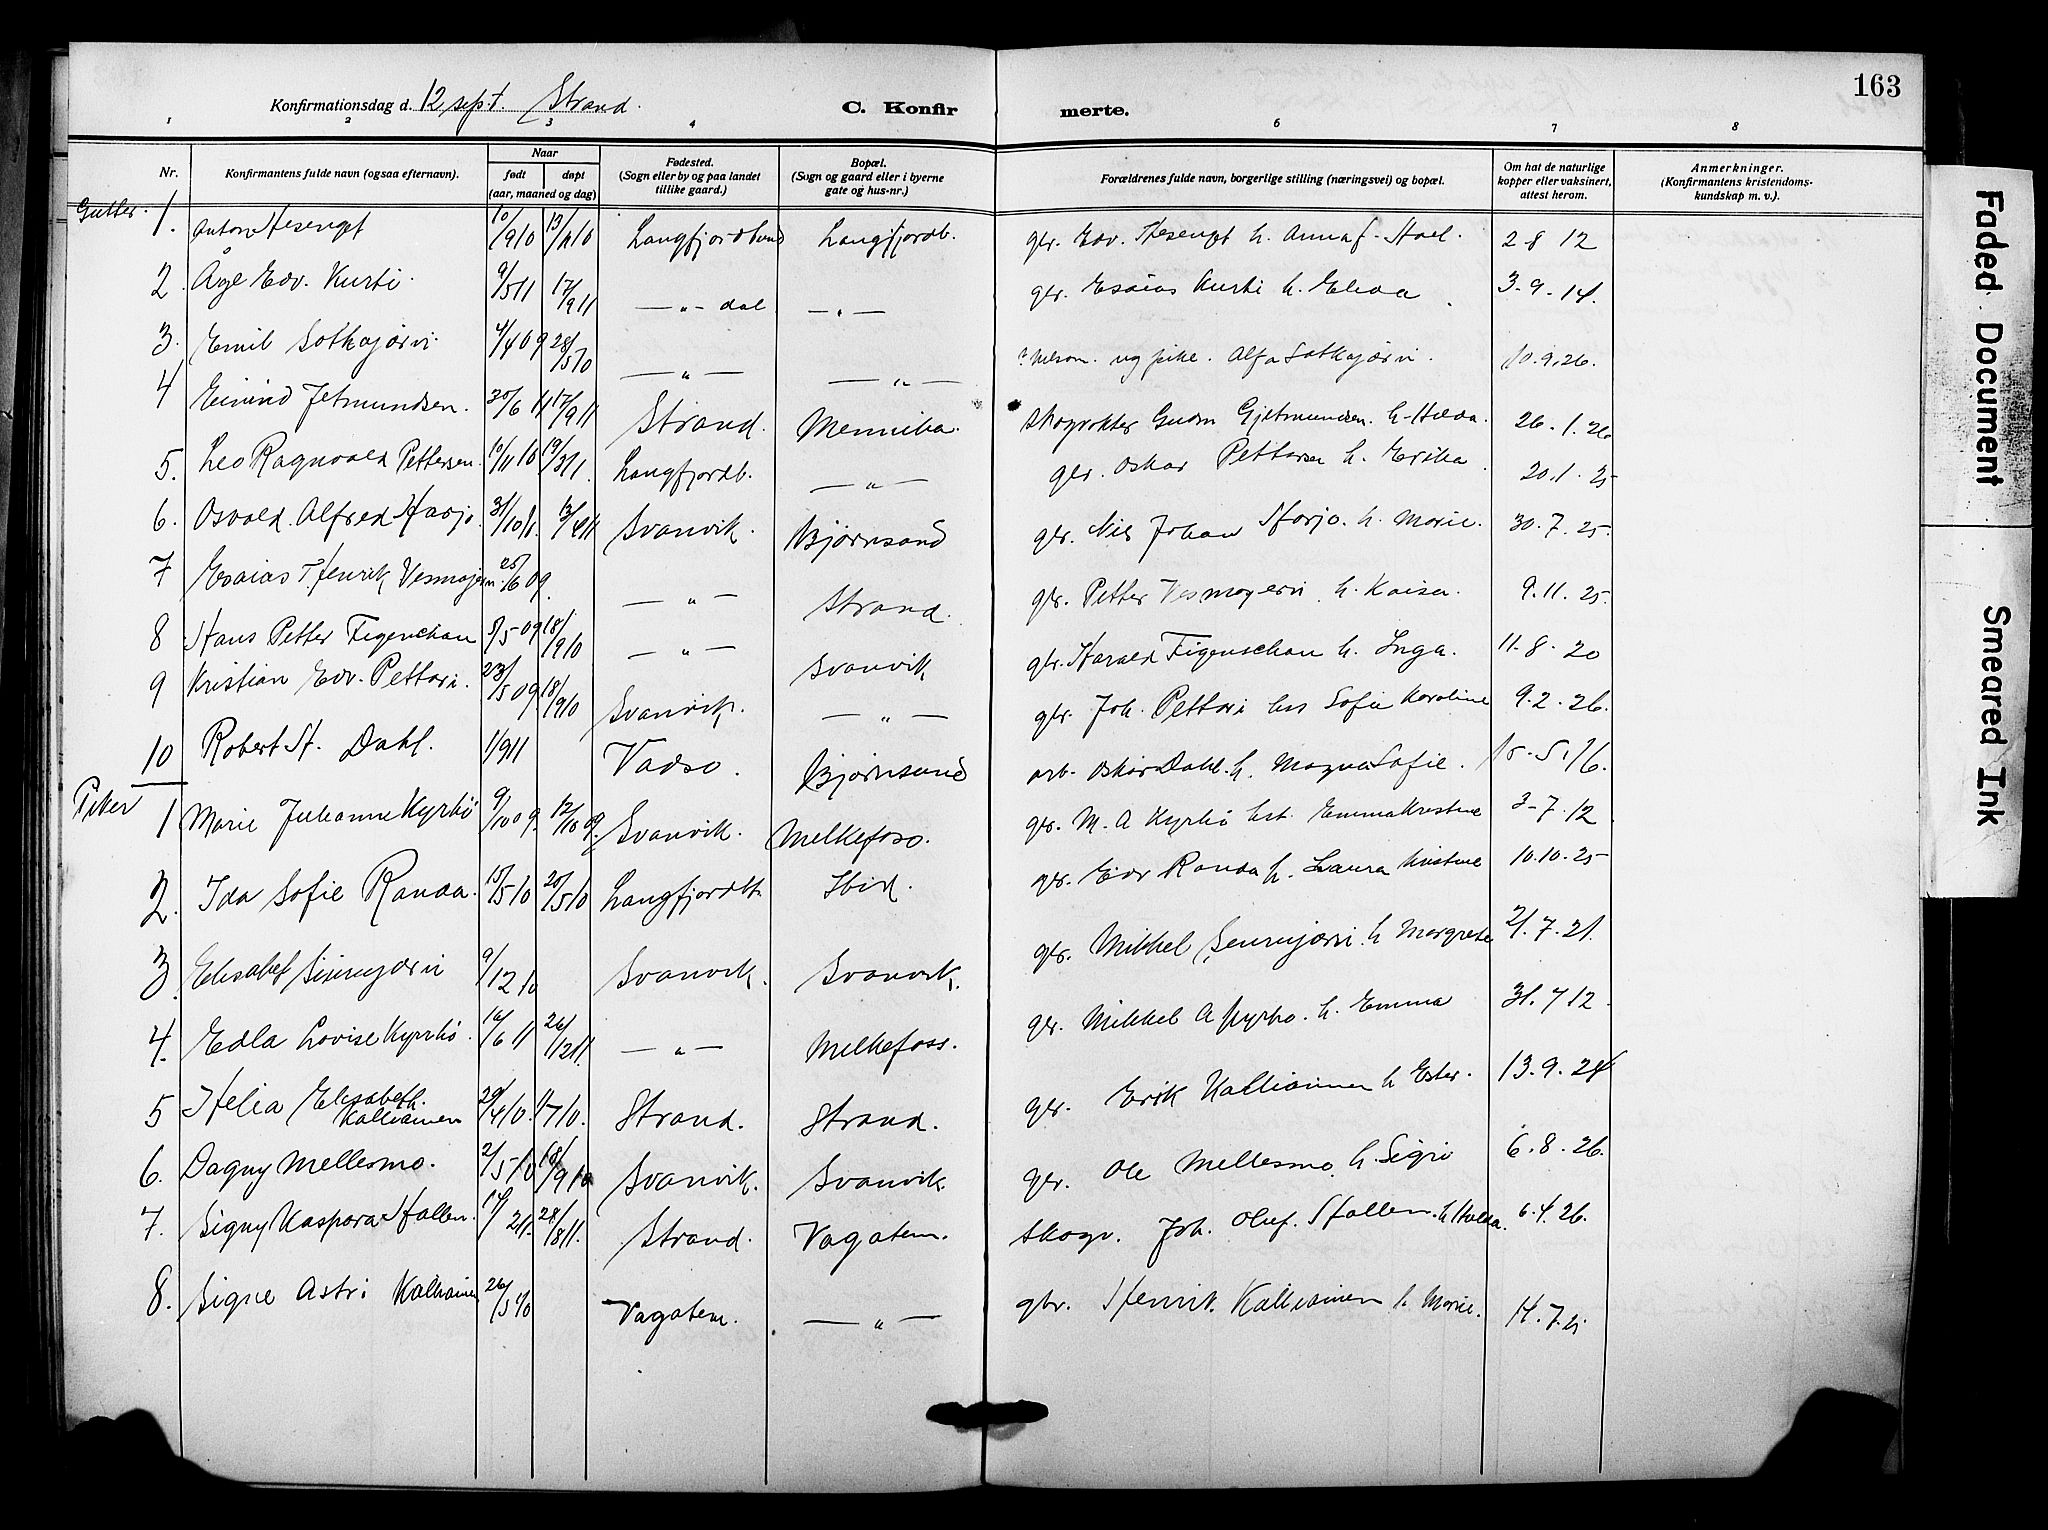 163
Konfirmationsdag d. 12 sept. Strand.
C. Konfirmerte.
1 2 3 4 6 7 8
Nr. Konfirmantens fulde navn (ogsaa efternavn). Naar født døpt (aar, maaned og dag) Fødested. (Sogn eller by og paa landet tillike gaard.) Bopæl. (Sogn og gaard eller i byerne gate og hus-nr.) Forældrenes fulde navn, borgerlige stilling (næringsvei) og bopæl. Om hat de naturlige kopper eller vaksinert, attest herom. Anmerkninger. (Konfirmantens kristendomskundskap m. v.).
Gutter. 1. Anton 10/9 10 Langfjordbund Langfjordb. gbr. Edv. h. Anna 2-8 12
2. Åge Edv. Kurti. 9/5 11 17/9 11 — " — dal — " — gbr. Esaias Kurti h. Elida 3-9-14.
3. Emil Sotkajærvi 4/4 09 28/5 10 — " — — " — ug pike. Alfa Sotkajærvi. 10.9.26.
4 Eivind Jetmundsen. 30/6 11 17/9 11 Strand. Mennika. Skogvokter Gudm Gjetmundsen. h. Hilda. 26.1.26
5. Leo Ragnvald Pettersen. 10/11 10 19/3 11. Langfjordb. — " — gbr. Oskar h. Erika 20.1.25
6. Osvald Alfred Harjo. 31/10 13/4 11 Svanvik. Bjørnsund gbr. Nils Johan Harjo. h. Marie. 30.7.25.
7 Esaias Henrik 25/6 09. — " — Strand. gbr. Petter h. Kaisa. 9.11.25.
8 Hans Petter Figenschau 8/5 09 18/9 10 — " — Svanvik gbr. Harald Figenschau h. Inga. 11-8-20
9 Kristian Edv. Petteri. 23/5 09. 18/9 10 Svanvik. — " — gbr. Joh. Petteri hus Sofie Karoline 9.2.26.
10 Robert H. Dahl. 1/9 11 Vadsø. Bjørnsund arb. Oskar Dahl. h. Magna Sofie. 15.5.16.
Piker 1 Marie Julianne Kyrhø 9/10 09. 12/10 09. Svanvik. Melkefoss. gbr. M. A Kyrhø hst. Emma Kristine 3-7.12
2. Ida Sofie Randa. 15/5 10 20/5 10 Langfjordb. Ibid. gbr. Edv Randa h. Laura Kristine 10.10.25
3. Elisabet 9/12 10 Svanvik. Svanvik. gbr. Mikkel h Margrete 21.7.21.
4. Edla Lovise Kyrhø. 16/6 11 26/12 11. — " — Melkefoss. gbr. Mikkel A Kyrhø. h. Emma 31.7 12
5 Helia Elisabeth. Kallioinen 29/4 10. 1/7 10. Strand. Strand. gbr. Erik Kallioinen h Ester. 13.9.24
6. Dagny Mellesmo. 2/5 10 18/9 10 Svanvik. Svanvik gbr. Ole Mellesmo. h. Sigri 6.8.26.
7. Signy Kaspara Hallen. 14/2 11. 28/8 11. Strand. Vagatem. Skogv. Joh. Oluf. Hallen. h Hulda. 6.4.26.
8. Signe Astri Kallioinen 26/5 10 Vagatem. — " — gbr. Henrik. Kallioinen h. Marie. 14.7.21
Faded Document
Smeared Ink